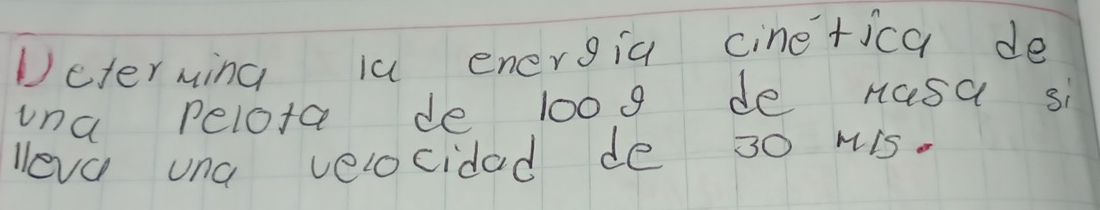 Determina la energía cinética de
una Pelota de 100 g de masa si
lleva una velocidad de 30 m/s.